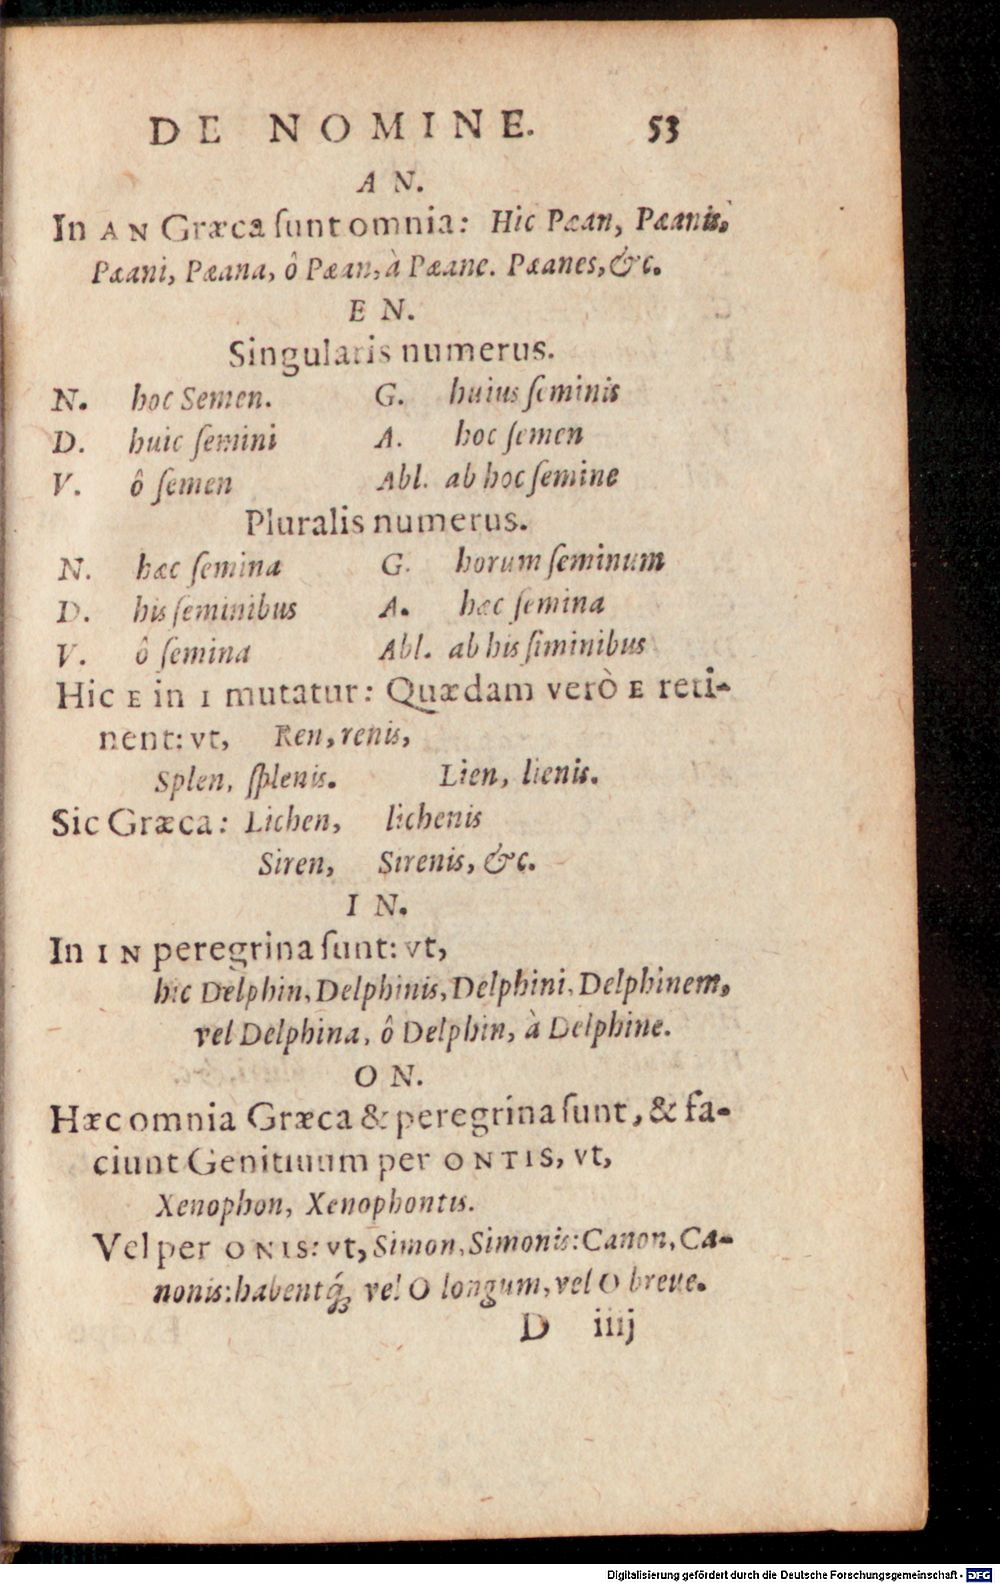 DE NOMINE. 53
AN.
In AN Græca ſunt omnia: Hic Pæan, Pæanis,
Pæani, Pæana, ô Pæan, à Pæane. Pæanes, &c.
EN.
Singularis numerus.
N. hoc Semen. G. huius ſeminis
D. huic ſemini A. hoc ſemen
V. ô ſemen Abl. ab hoc ſemine
Pluralis numerus.
N. hæc ſemina G. horum ſeminum
D. his ſeminibus A. hæc ſemina
V. ô ſemina Abl. ab his ſiminibus
Hic E in I mutatur: Quædam verò E reti-
nent: vt, Ren, renis,
Splen, ſplenis. Lien, lienis.
Sic Græca: Lichen, lichenis
Siren, Sirenis, &c.
IN.
In IN peregrina ſunt: vt,
hic Delphin, Delphinis, Delphini, Delphinem,
vel Delphina, ô Delphin, à Delphine.
ON.
Hæc omnia Græca & peregrina ſunt, & fa-
ciunt Genitiuum per ONTIS, vt,
Xenophon, Xenophontis.
Vel per ONIS: vt, Simon, Simonis: Canon, Ca-
nonis: habentq́; vel O longum, vel O breue.
D iiij
Digitalisierung gefördert durch die Deutsche Forschungsgemeinschaft - DFG